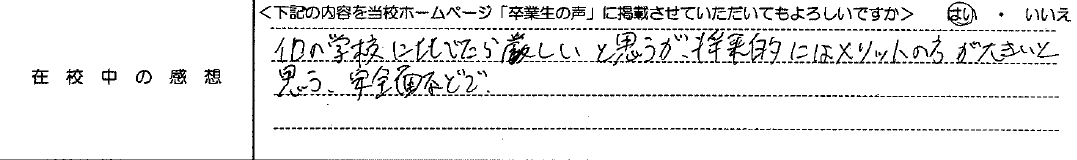 <下記の内容を当校ホームページ「卒業生の声」に掲載させていただいてもよろしいですか> はい ・ いいえ
在校中の感想
他の学校に比べたら厳しいと思うが、将来的にはメリットの方が大きいと
思う、安全面などで、